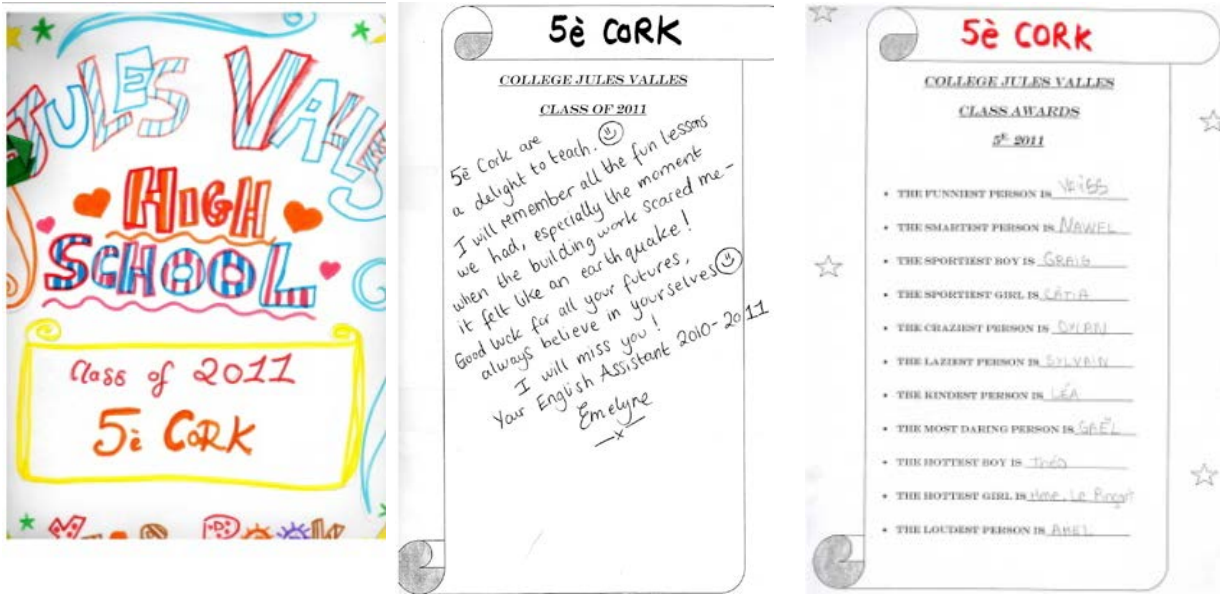 JULES VALLES
HIGH
SCHOOL
Class of 2011
5è CORK
5è CORK
COLLEGE JULES VALLES
CLASS OF 2011
5è Cork are
a delight to teach.
I will remember all the fun lessons
we had, especially the moment
when the building work scared me-
it felt like an earthquake!
Good luck for all your futures,
always believe in yourselves
I will miss you!
Your English Assistant 2010-2011
Emelyne
x
5è CORK
COLLEGE JULES VALLES
CLASS AWARDS
5E 2011
• THE FUNNIEST PERSON IS
• THE SMARTEST PERSON IS NAWEL
• THE SPORTIEST BOY IS GRAIG
• THE SPORTIEST GIRL IS CÁTIA
• THE CRAZIEST PERSON IS DYLAN
• THE LAZIEST PERSON IS SYLVAIN
• THE KINDEST PERSON IS LÉA
• THE MOST DARING PERSON IS GAËL
• THE HOTTEST BOY IS Théo
• THE HOTTEST GIRL IS Mme. Le
• THE LOUDEST PERSON IS AMEL